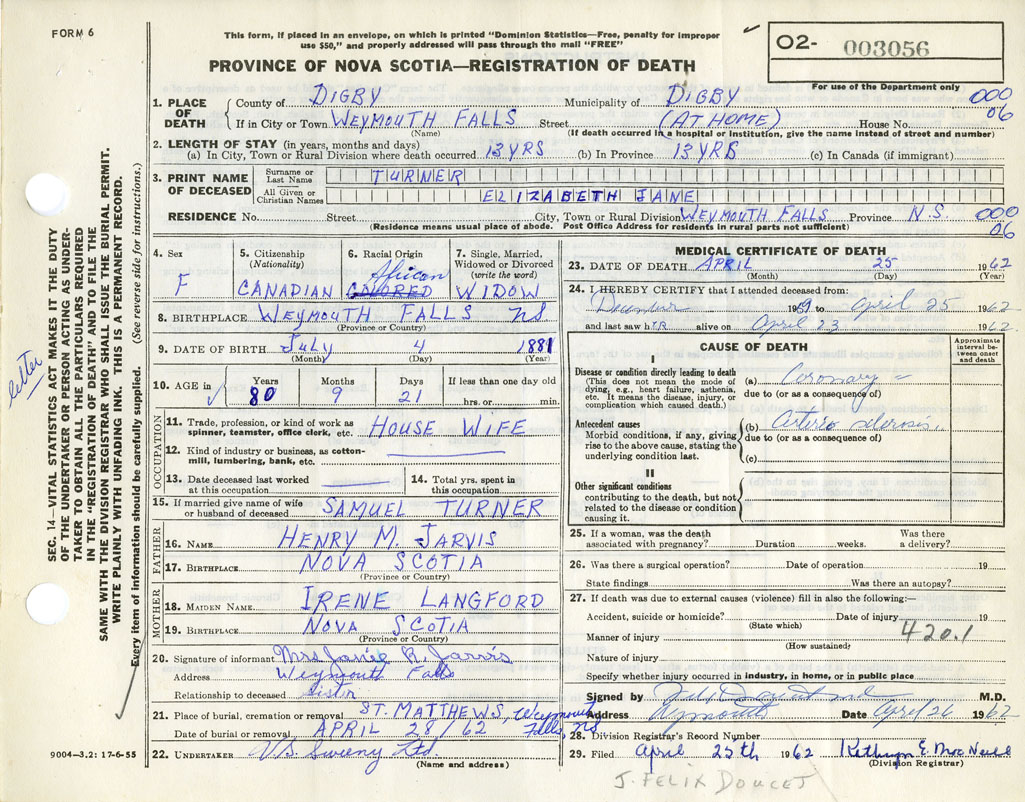 FORM 6
This form, if placed in an envelope, on which is printed "Dominion Statistics—Free, penalty for improper
use $50," and properly addressed will pass through the mail "FREE"
PROVINCE OF NOVA SCOTIA—REGISTRATION OF DEATH
02- 003056
For use of the Department only
000
06
1. PLACE OF DEATH
County of DIGBY Municipality of DIGBY
If in City or Town WEYMOUTH FALLS Street (AT HOME) House No.
(Name) (If death occurred in a hospital or institution, give the name instead of street and number)
2. LENGTH OF STAY (in years, months and days)
(a) In City, Town or Rural Division where death occurred 13 YRS (b) In Province 13 YRS (c) In Canada (if immigrant)
3. PRINT NAME OF DECEASED
Surname or Last Name TURNER
All Given or Christian Names ELIZABETH JANE
RESIDENCE No. Street City, Town or Rural Division WEYMOUTH FALLS Province N.S. 000
06
(Residence means usual place of abode. Post Office Address for residents in rural parts not sufficient)
4. Sex F
5. Citizenship (Nationality) CANADIAN
6. Racial Origin African COLORED
7. Single, Married, Widowed or Divorced (write the word) WIDOW
8. BIRTHPLACE WEYMOUTH FALLS NS.
(Province or Country)
9. DATE OF BIRTH July 4 1881
(Month) (Day) (Year)
10. AGE in Years Months Days If less than one day old
80 9 21 hrs. or min.
OCCUPATION
11. Trade, profession, or kind of work as spinner, teamster, office clerk, etc. HOUSE WIFE
12. Kind of industry or business, as cotton-mill, lumbering, bank, etc.
13. Date deceased last worked at this occupation
14. Total yrs. spent in this occupation
15. If married give name of wife or husband of deceased SAMUEL TURNER
FATHER
16. NAME HENRY M. JARVIS
17. BIRTHPLACE NOVA SCOTIA
(Province or Country)
MOTHER
18. MAIDEN NAME IRENE LANGFORD
19. BIRTHPLACE NOVA SCOTIA
(Province or Country)
20. Signature of informant Mrs Janie R. Jarvis
Address Weymouth Falls
Relationship to deceased Sister
21. Place of burial, cremation or removal ST. MATTHEWS, Weymouth
Date of burial or removal APRIL 28/62 Falls, NS
22. UNDERTAKER V.S. Sweny Ltd.
(Name and address)
MEDICAL CERTIFICATE OF DEATH
23. DATE OF DEATH APRIL 25 1962
(Month) (Day) (Year)
24. I HEREBY CERTIFY that I attended deceased from:
December 19 to April 25 1962
and last saw her alive on April 23 1962.
CAUSE OF DEATH
Approximate interval between onset and death
I
Disease or condition directly leading to death
(This does not mean the mode of dying, e.g., heart failure, asthenia, etc. It means the disease, injury, or complication which caused death.)
(a) Coronary
due to (or as a consequence of)
Antecedent causes
Morbid conditions, if any, giving rise to the above cause, stating the underlying condition last.
(b) Arterio sclerosis.
due to (or as a consequence of)
(c)
II
Other significant conditions
contributing to the death, but not related to the disease or condition causing it.
25. If a woman, was the death associated with pregnancy? Duration weeks. Was there a delivery?
26. Was there a surgical operation? Date of operation 19
State findings Was there an autopsy?
27. If death was due to external causes (violence) fill in also the following:—
Accident, suicide or homicide? Date of injury 19
(State which)
Manner of injury 420.1
(How sustained)
Nature of injury
Specify whether injury occurred in industry, in home, or in public place
Signed by M.D.
Address Weymouth Date April 26 1962
28. Division Registrar's Record Number
29. Filed April 25th 1962 Kathryn E. MacNeill
(Division Registrar)
J. FELIX DOUCET
SEC. 14—VITAL STATISTICS ACT MAKES IT THE DUTY
OF THE UNDERTAKER OR PERSON ACTING AS UNDER-
TAKER TO OBTAIN ALL THE PARTICULARS REQUIRED
IN THE "REGISTRATION OF DEATH" AND TO FILE THE
SAME WITH THE DIVISION REGISTRAR WHO SHALL ISSUE THE BURIAL PERMIT.
WRITE PLAINLY WITH UNFADING INK. THIS IS A PERMANENT RECORD.
Every item of information should be carefully supplied. (See reverse side for instructions.)
letter
9004—3.2: 17-6-55